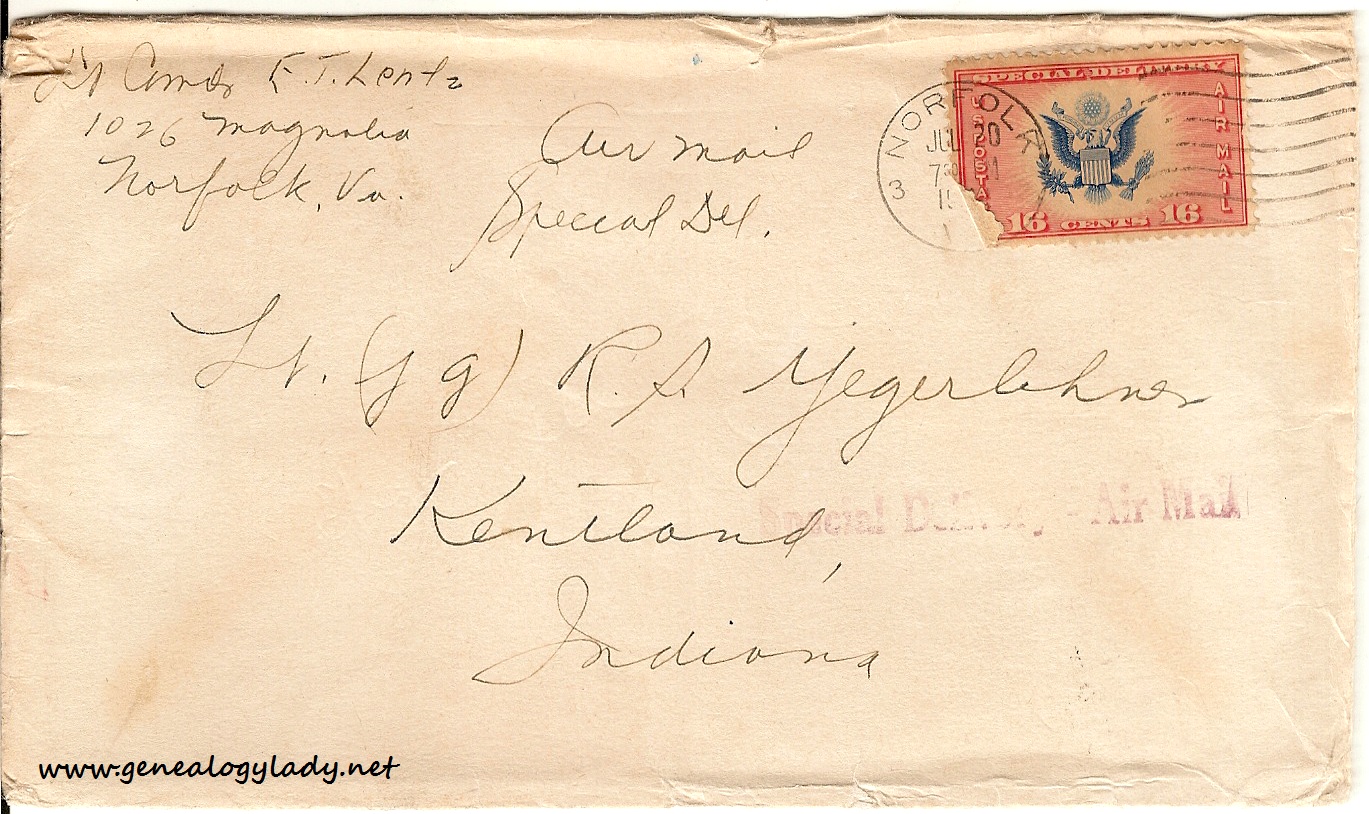 Lt Comdr E. T. Lentz
1026 Magnolia
Norfolk, Va.
Air Mail
Special Del.
NORFOLK
JUL 20
3
SPECIAL DELIVERY
U.S. POSTA
AIR MAIL
16 CENTS 16
Lt. (jg) R. S. Yegerlehner
Kentland,
Indiana
Special Delivery - Air Mail
www.genealogylady.net